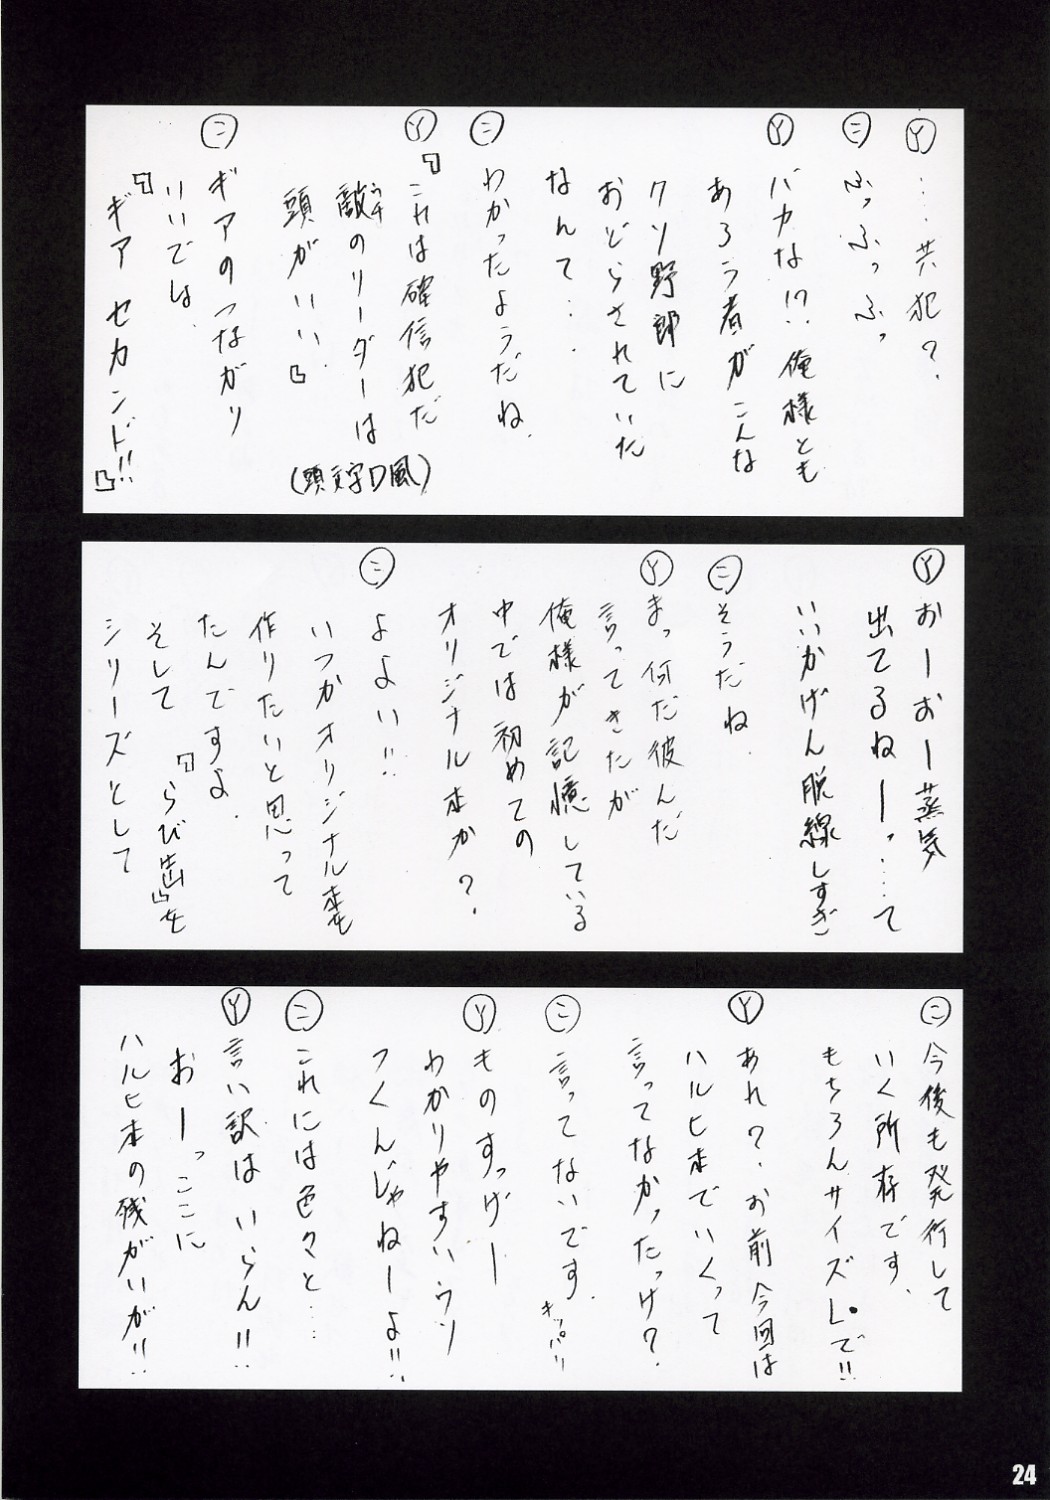 Ⓨ …共犯？
㊁ ふっふっふっ
Ⓨ バカな!?俺様とも
あろう者がこんな
クソ野郎に
おどらされていた
なんて…．
㊁ わかったようだね．
Ⓨ 『これは確信犯だ
敵のリーダーは
頭がいい．』
(頭文字D風)
㊁ ギアのつながり
いいでは．
『ギア セカンド!!』
Ⓨ おーおー蒸気
出てるねーっ……て
いいかげん脱線しすぎ
㊁ そうだね．
Ⓨ まっ何だ彼んだ
言ってきたが
俺様が記憶している
中では初めての
オリジナル本か？．
㊁ よよい!!
いつかオリジナル本を
作りたいと思って
たんですよ．
そして『らび出』を
シリーズとして
㊁ 今後も発行して
いく所存です．
もちろんサイズLで!!
Ⓨ あれ？．お前今回は
ハルヒ本でいくって
言ってなかったっけ？．
㊁ 言ってないです．
キッパリ
Ⓨ ものすっげー
わかりやすいウソ
つくんじゃねーよ!!
㊁ これには色々と…
Ⓨ 言い訳はいらん!!
おーっここに
ハルヒ本の残がいが!!
24